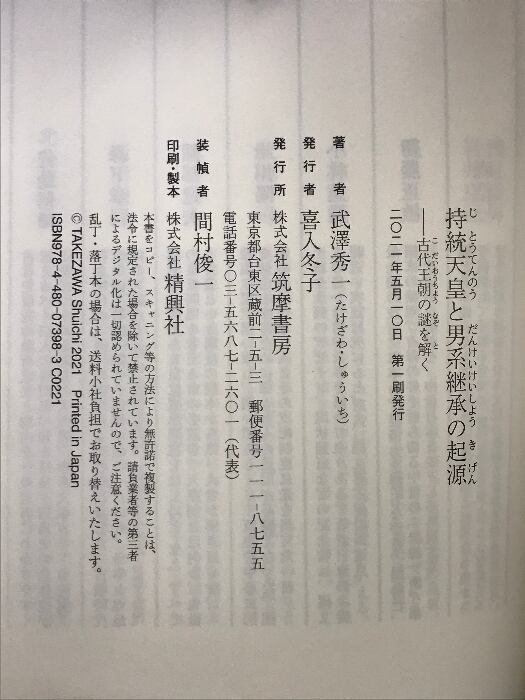 持統天皇と男系継承の起源
じとうてんのう だんけいけいしょう きげん
――古代王朝の謎を解く
こだいおうちょう なぞ と
二〇二一年五月一〇日 第一刷発行
著者 武澤秀一(たけざわ・しゅういち)
発行者 喜入冬子
発行所 株式会社 筑摩書房
東京都台東区蔵前二-五-三 郵便番号一一一-八七五五
電話番号〇三-五六八七-二六〇一(代表)
装幀者 間村俊一
印刷・製本 株式会社 精興社
本書をコピー、スキャニング等の方法により無許諾で複製することは、
法令に規定された場合を除いて禁止されています。請負業者等の第三者
によるデジタル化は一切認められていませんので、ご注意ください。
乱丁・落丁本の場合は、送料小社負担でお取り替えいたします。
© TAKEZAWA Shuichi 2021 Printed in Japan
ISBN978-4-480-07398-3 C0221